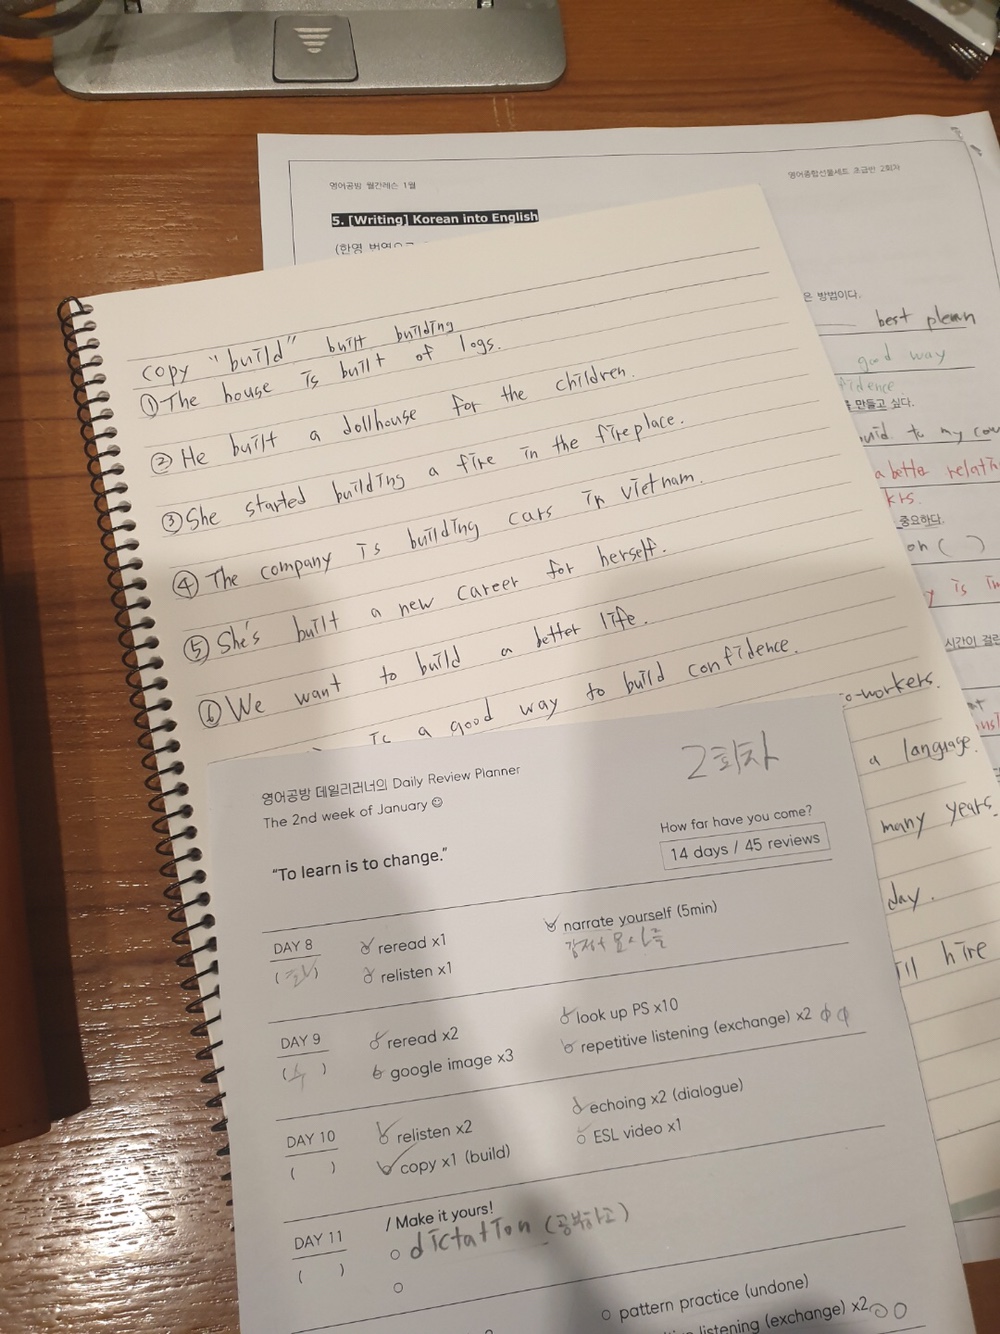 영어공방 월간레슨 1월
영어종합선물세트 초급반 2회차
5. [Writing] Korean into English
(한영
은 방법이다.
best
good way
만들고 싶다.
to my
a better
중요하다.
on ( )
is
시간이
copy "build" built building
① The house is built of logs.
② He built a dollhouse for the children.
③ She started building a fire in the fireplace.
④ The company is building cars in vietnam.
⑤ She's built a new career for herself.
⑥ We want to build a better life.
a good way to build confidence.
co-workers.
a language.
many years.
day.
hire
2회차
영어공방 데일리러너의 Daily Review Planner
The 2nd week of January ☺
How far have you come?
14 days / 45 reviews
"To learn is to change."
DAY 8
reread x1
relisten x1
narrate yourself (5min)
DAY 9
reread x2
google image x3
look up PS x10
repetitive listening (exchange) x2
DAY 10
( )
relisten x2
copy x1 (build)
echoing x2 (dialogue)
ESL video x1
DAY 11
( )
/ Make it yours!
dictation (공부하고)
pattern practice (undone)
listening (exchange) x2